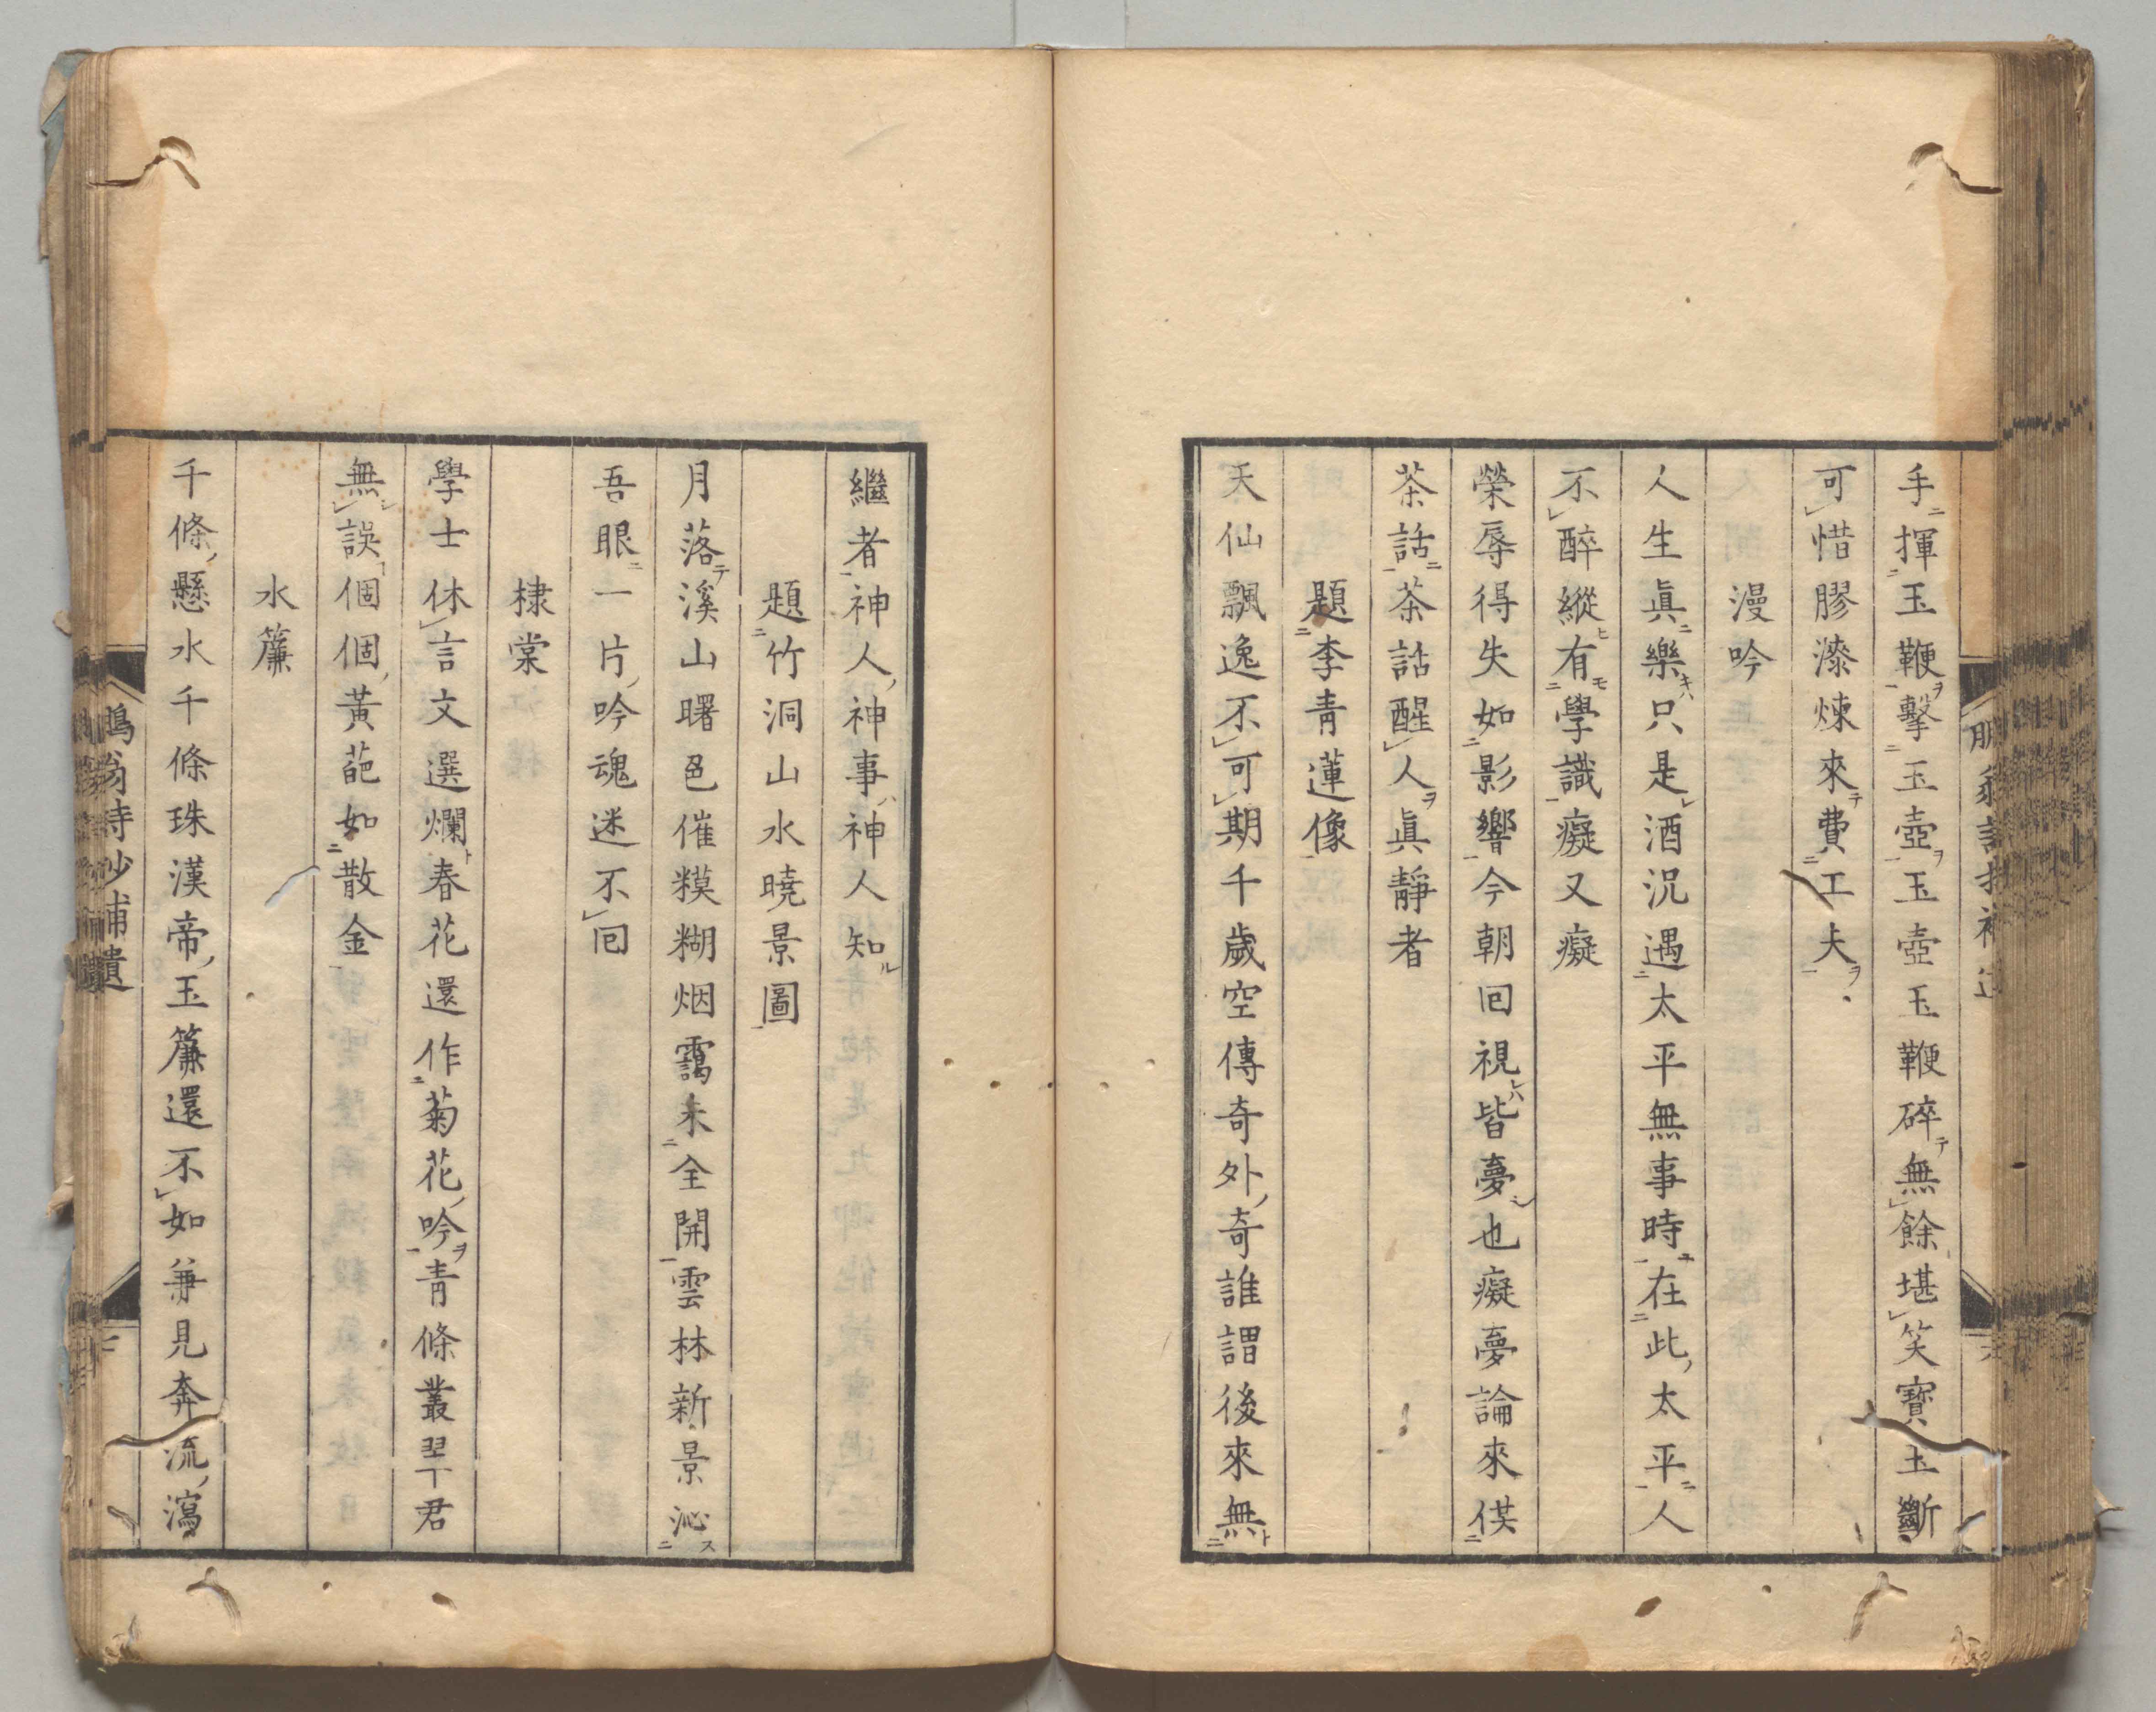 手揮玉鞭擊玉壺玉壺玉鞭碎無餘堪笑寶玉斷
可惜膠漆煉來費工夫
漫吟
人生眞樂只是酒況遇太平無事時在此太平人
不醉縱有學識癡又癡
榮辱得失如影響今朝回視皆夢也癡夢論來僕
茶話茶話醒人眞靜者
題李青蓮像
天仙飄逸不可期千歲空傳奇外奇誰謂後來無
繼者神人神事神人知
題竹洞山水曉景圖
月落溪山曙色催糢糊烟靄未全開雲林新景沁
吾眼一片吟魂迷不回
棣棠
學士休言文選爛春花還作菊花吟青條叢翠君
無誤個個黃葩如散金
水簾
千條懸水千條珠漢帝玉簾還不如兼見奔流瀉
翁詩鈔補遺